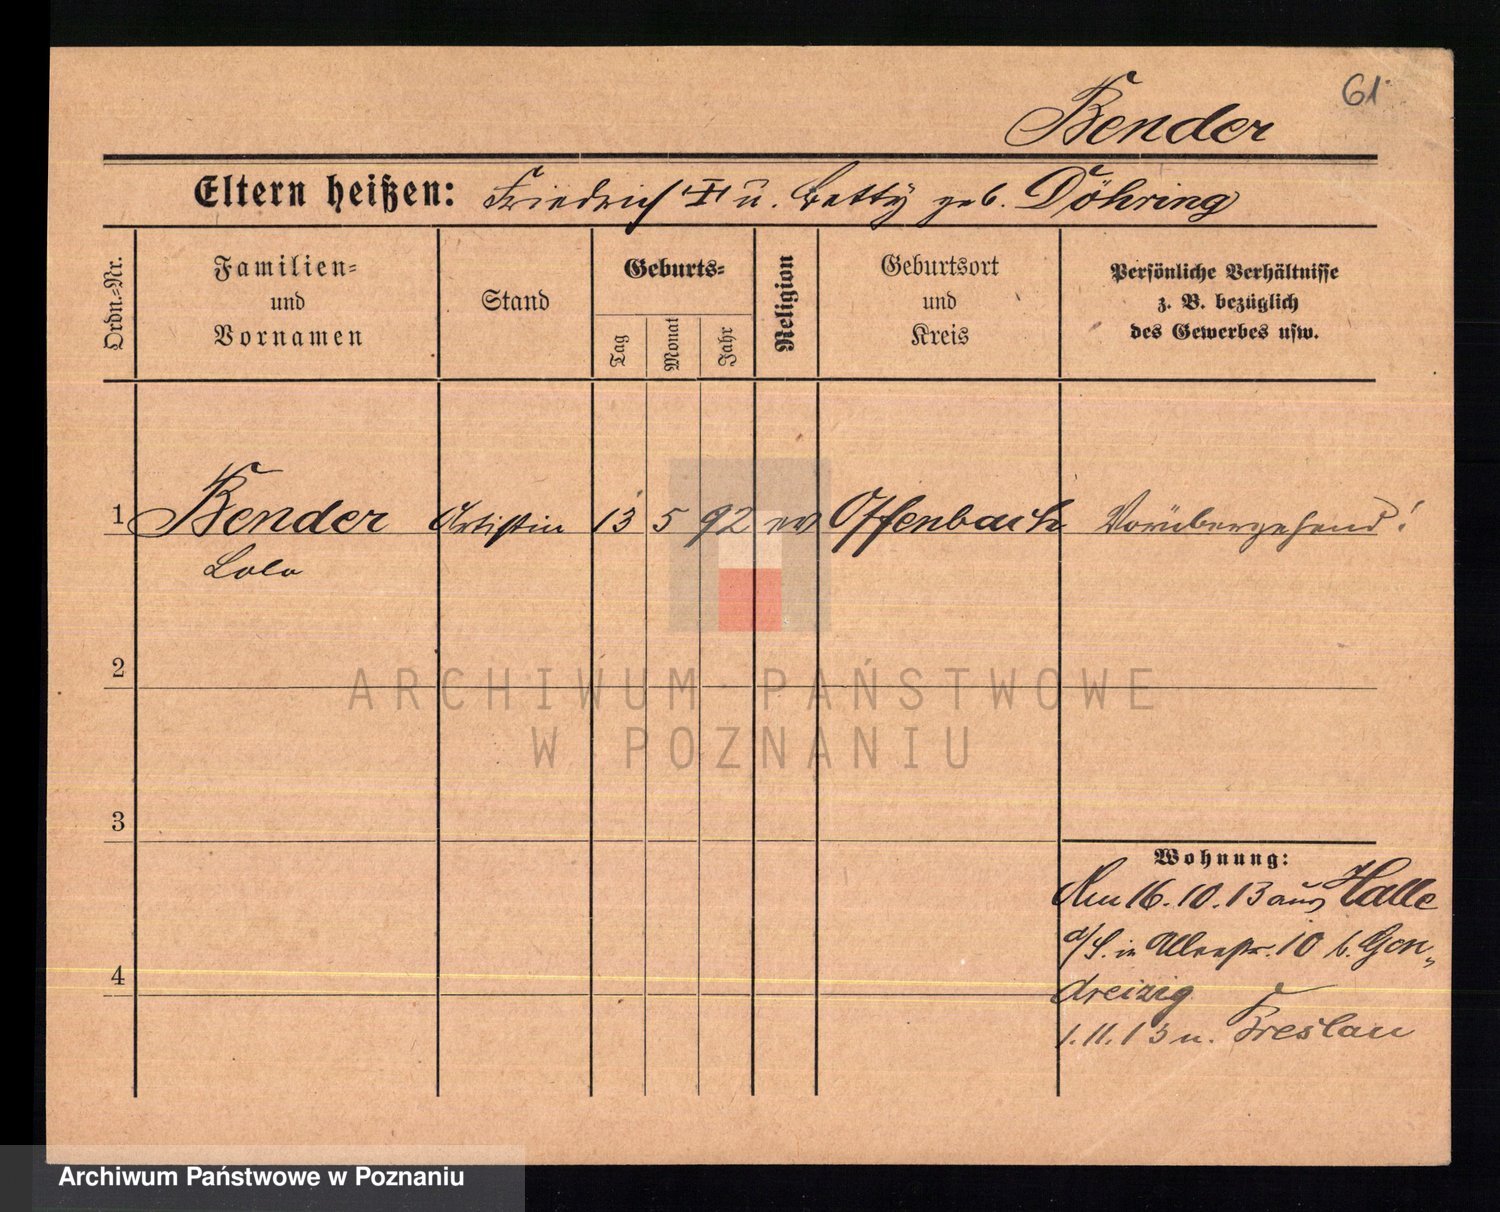 61
Bender
Eltern heißen: Friedrich II u. Betty geb. Döhring
Ordn.-Nr.
Familien-
und
Vornamen
Stand
Geburts-
Tag
Monat
Jahr
Religion
Geburtsort
und
Kreis
Persönliche Verhältnisse
z. B. bezüglich
des Gewerbes usw.
1 Bender Artistin 13 5 92 ev Offenbach Vorübergehend!
Lola
2
3
4
Wohnung:
Am 16.10.13 aus Halle
a/S. in Alleestr. 10 b. Gon-
dreizig
1.11.13 n. Breslau
ARCHIWUM PAŃSTWOWE
W POZNANIU
Archiwum Państwowe w Poznaniu